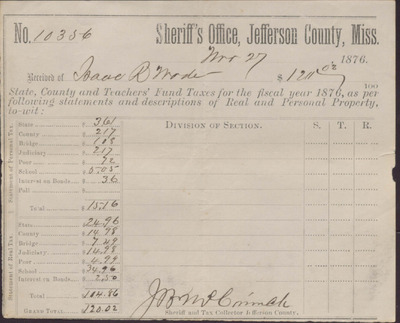 No. 10356 Sheriff's Office, Jefferson County, Miss.
Nov 27 1876.
Received of Isaac R Wade $ 120 02/100
State, County and Teachers' Fund Taxes for the fiscal year 1876, as per
following statements and descriptions of Real and Personal Property,
to-wit:
Statement of Personal Tax.
State $ 3.61
County $ 2.17
Bridge $ 1.08
Judiciary $ 2.17
Poor $ 72
School $ 5.05
Interest on Bonds $ 36
Poll $
Total $ 15.16
Statement of Real Tax.
State $ 24.96
County $ 14.98
Bridge $ 7.49
Judiciary $ 14.98
Poor $ 4.99
School $ 34.96
Interest on Bonds $ 2.50
Total $ 104.86
Grand Total $ 120.02
Division of Section. S. T. R.
Sheriff and Tax Collector Jefferson County.